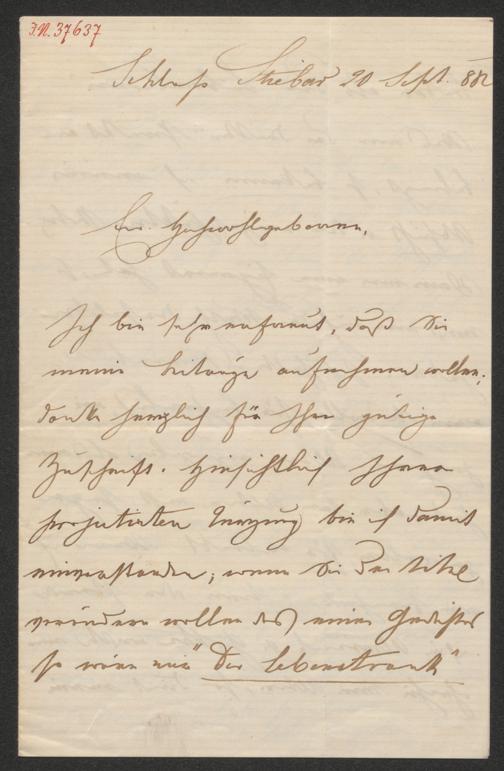 J.N. 37637
Schloß Stiebar 20 Sept. 882
Ew. Hochwohlgeboren,
Ich bin sehr erfreut, daß Sie
meine Beiträge aufnehmen wollen;
danke herzlich für Ihre gütige
Zuschrift. Hinsichtlich Ihrer
projectirten Kürzung bin ich damit
einverstanden; wenn Sie den Titel
verändern wollen des einen Gedichtes
so wäre mir "Der Lebenstrank"